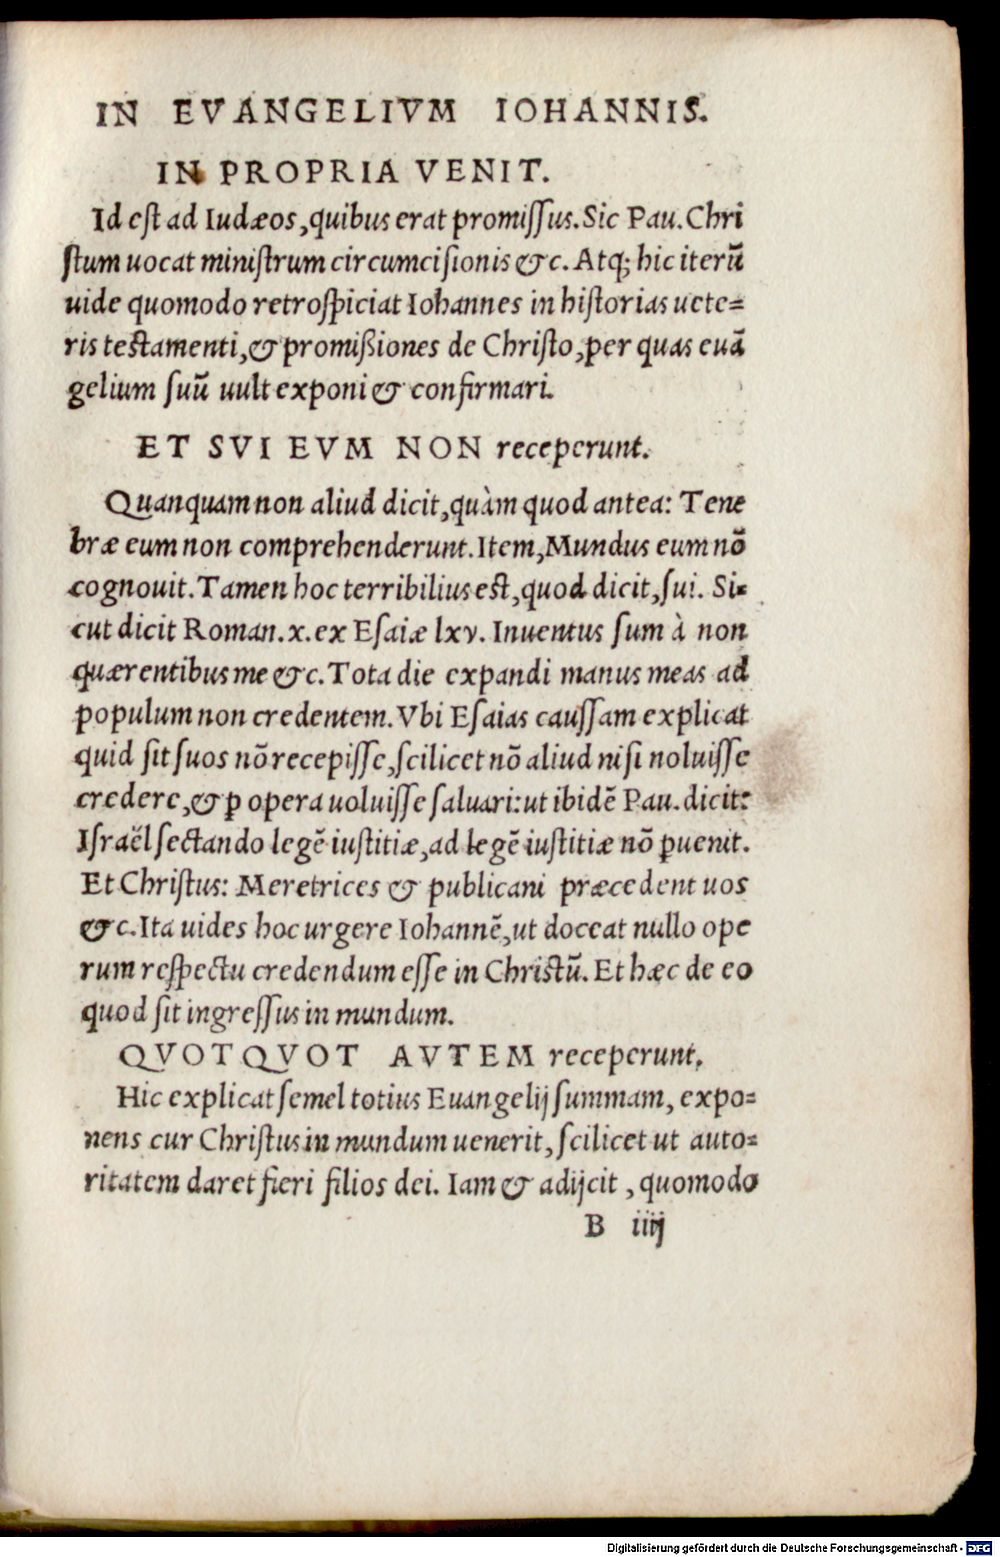 IN EVANGELIVM IOHANNIS.
IN PROPRIA VENIT.
Id est ad Iudæos, quibus erat promissus. Sic Pau. Chri
stum uocat ministrum circumcisionis &c. Atq; hic iterū
uide quomodo retrospiciat Iohannes in historias uete=
ris testamenti, & promißiones de Christo, per quas euā
gelium suū uult exponi & confirmari.
ET SVI EVM NON receperunt.
Quanquam non aliud dicit, quàm quod antea: Tene
bræ eum non comprehenderunt. Item, Mundus eum nō
cognouit. Tamen hoc terribilius est, quod dicit, sui. Si=
cut dicit Roman. x. ex Esaiæ lxv. Inuentus sum à non
quærentibus me &c. Tota die expandi manus meas ad
populum non credentem. Vbi Esaias caussam explicat
quid sit suos nō recepisse, scilicet nō aliud nisi noluisse
credere, & ꝑ opera uoluisse saluari: ut ibidē Pau. dicit:
Israël sectando legē iustitiæ, ad legē iustitiæ nō ꝑuenit.
Et Christus: Meretrices & publicani præcedent uos
&c. Ita uides hoc urgere Iohannē, ut doceat nullo ope
rum respectu credendum esse in Christū. Et hæc de eo
quod sit ingressus in mundum.
QVOTQVOT AVTEM receperunt,
Hic explicat semel totius Euangelij summam, expo=
nens cur Christus in mundum uenerit, scilicet ut auto=
ritatem daret fieri filios dei. Iam & adijcit, quomodo
B iiij
Digitalisierung gefördert durch die Deutsche Forschungsgemeinschaft - DFG